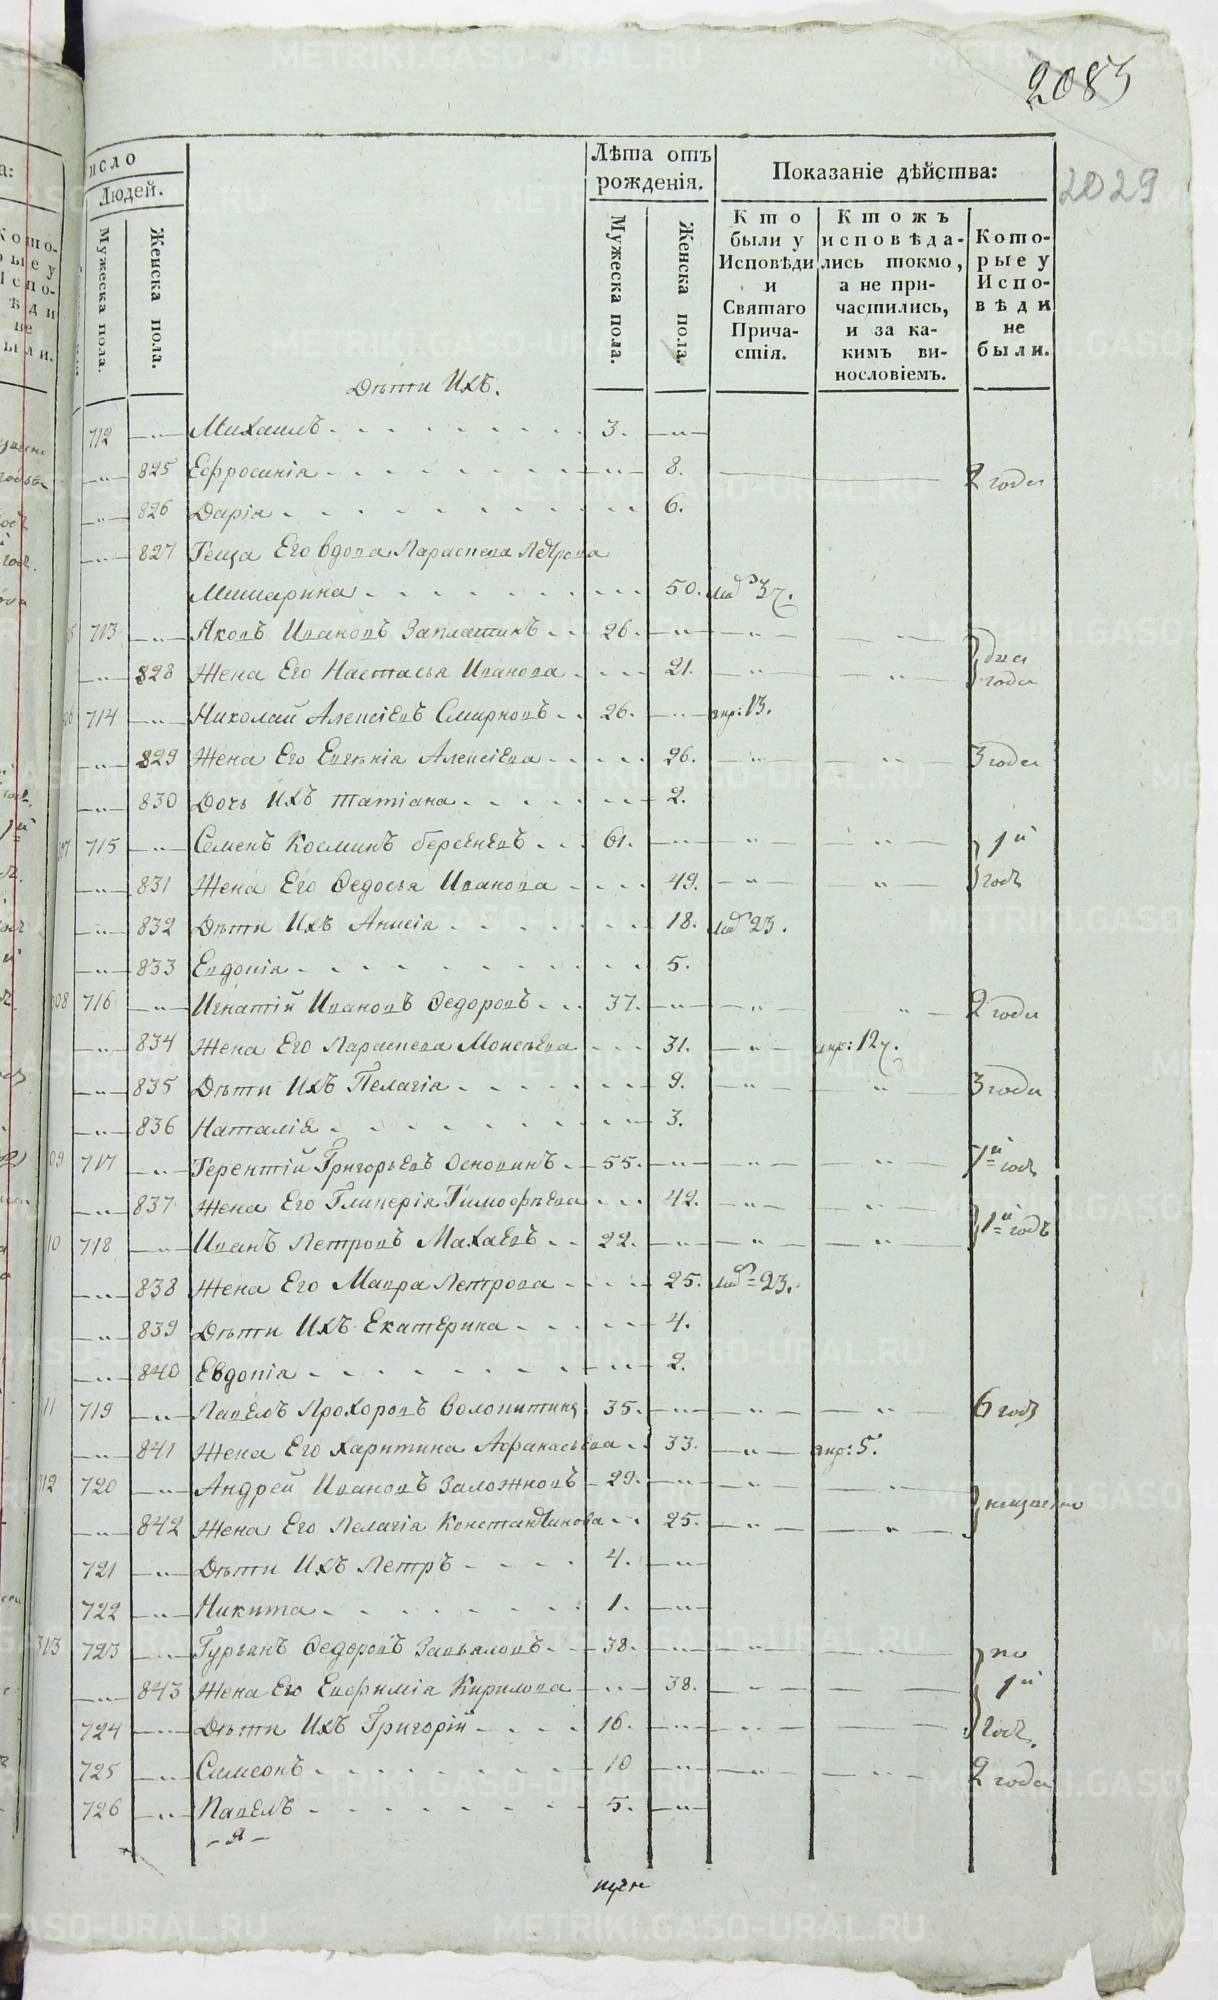 2083
2029
исло
Людей.
Мужеска пола.
Женска пола.
Лѣта отъ рожденія.
Мужеска пола.
Женска пола.
Показаніе дѣйства:
Кто были у Исповѣди и Святаго Прича-стія.
Ктожъ исповѣда-лись токмо, а не при-частились, и за ка-кимъ ви-нословіемъ.
Кото-рые у Испо-вѣди не были.
Дѣти Ихъ.
712 Михаилъ 3.
825 Ефросинія 8. 2 года
826 Дарія 6.
827 Теща Его вдова Параскева Петрова
Мишарина 50. 37.
713 Яковъ Ивановъ Заплатинъ 26.
828 Жена Его Настасья Иванова 21. два года
714 Николай Алексіевъ Смирновъ 26. апр: 13.
829 Жена Его Евгѣнія Алексіева 26. 3 года
830 Дочь Ихъ Татіана 2.
715 Семенъ Косминъ Береневъ 61. 1й
831 Жена Его Федосья Иванова 49. годъ
832 Дѣти Ихъ Анисія 18. 23.
833 Евдокія 5.
716 Игнатій Ивановъ Федоровъ 37. 2 года
834 Жена Его Параскева Моисѣева 31. апр: 12
835 Дѣти Ихъ Пелагія 9. 3 года
836 Наталія 3.
717 Терентій Григорьевъ Основинъ 55. 1й годъ
837 Жена Его Гликерія Тимофѣева 42.
718 Иванъ Петровъ Махаевъ 22. 1й годъ
838 Жена Его Мавра Петрова 25. 23.
839 Дѣти Ихъ Екатерина 4.
840 Евдокія 2.
719 Павелъ Прохоровъ Волокитинъ 35. 6 годъ
841 Жена Его Харитина Афанасьева 33. апр: 5.
720 Андрей Ивановъ Заложновъ 29.
842 Жена Его Пелагія Константинова 25.
721 Дѣти Ихъ Петръ 4.
722 Никита 1.
723 Гурьянъ Федоровъ Завьяловъ 38. по
843 Жена Его Евфимія Кирилова 38. 1й
724 Дѣти Ихъ Григорій 16. годъ.
725 Симеонъ 10 2 года
726 Павелъ 5.